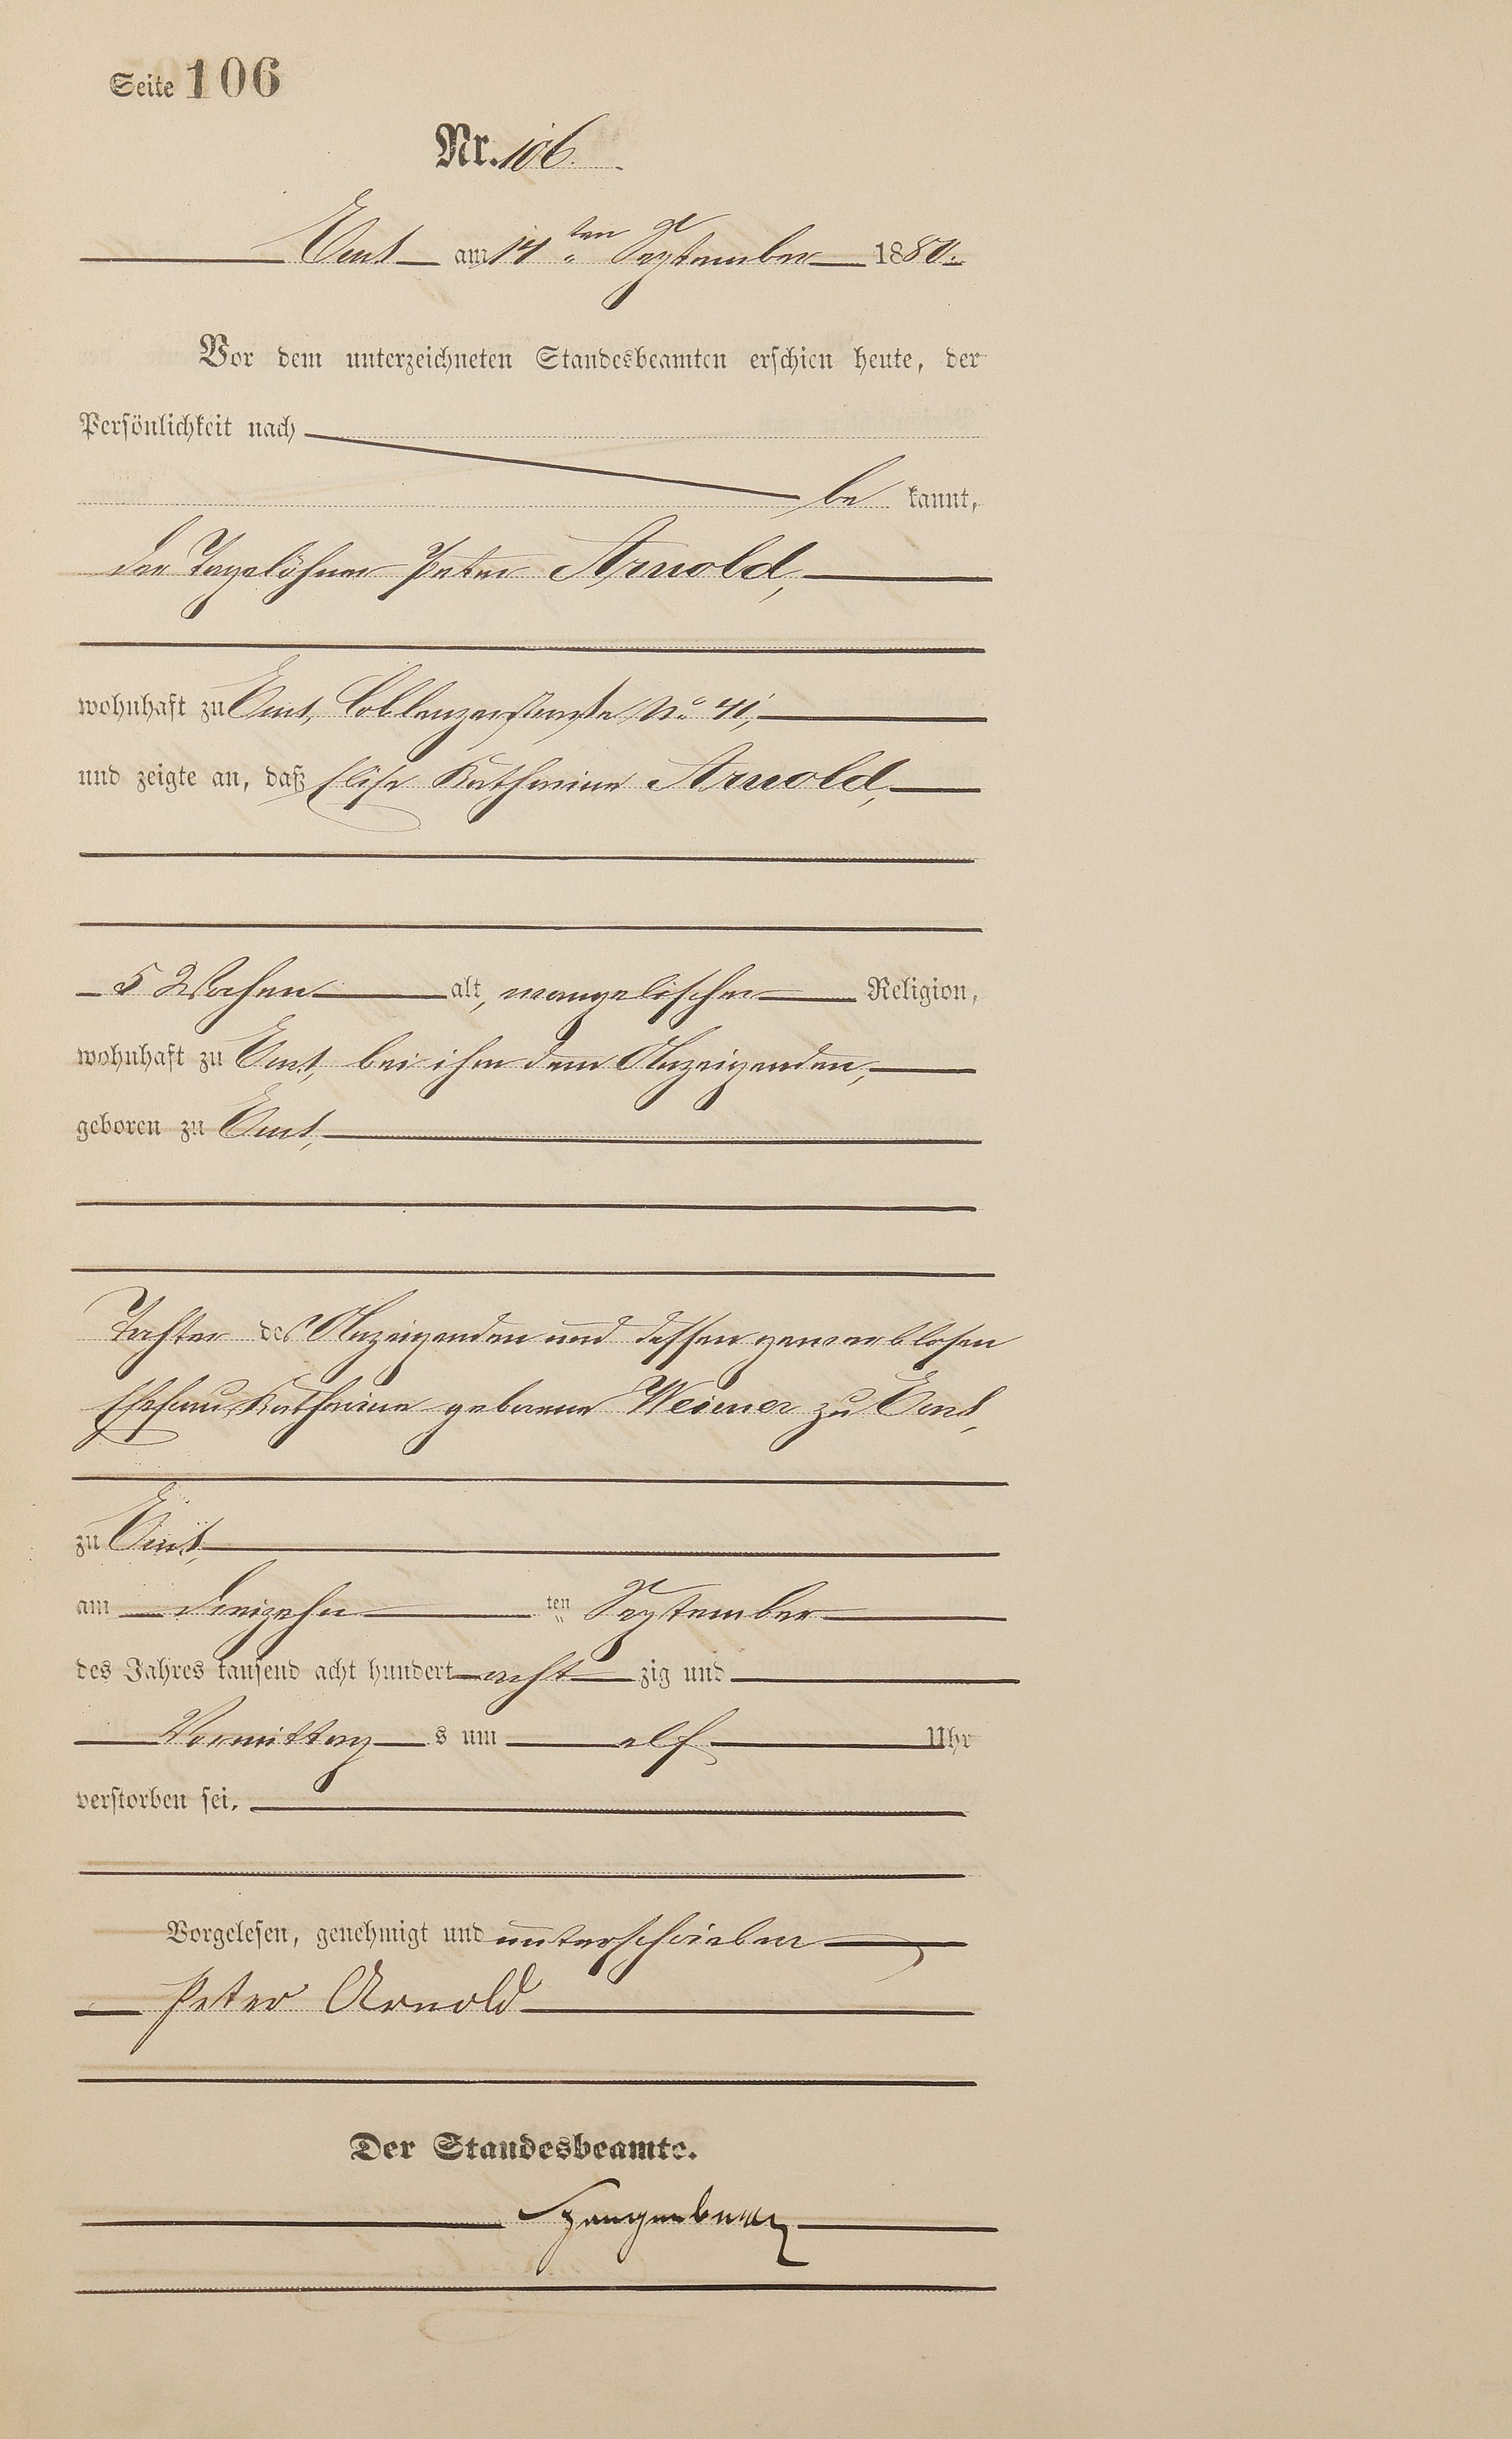 Seite 106
Nr. 106.
Ems am 14ten September 1880.
Vor dem unterzeichneten Standesbeamten erschien heute, der
Persönlichkeit nach
be kannt,
der Tagelöhner Peter Arnold,
wohnhaft zu Ems, Coblenzerstraße No 41,
und zeigte an, daß Elise Katharina Arnold,
5 Wochen alt, evangelischer Religion,
wohnhaft zu Ems, bei ihm dem Anzeigenden,
geboren zu Ems,
Tochter des Anzeigenden und dessen gewerblosen
Ehefrau Katharine geborene Weimer zu Ems,
zu Ems,
am dreizehn ten September
des Jahres tausend acht hundert acht zig und
Vormittag s um elf Uhr
verstorben sei.
Vorgelesen, genehmigt und unterschrieben
Peter Arnold
Der Standesbeamte.
Spangenberg